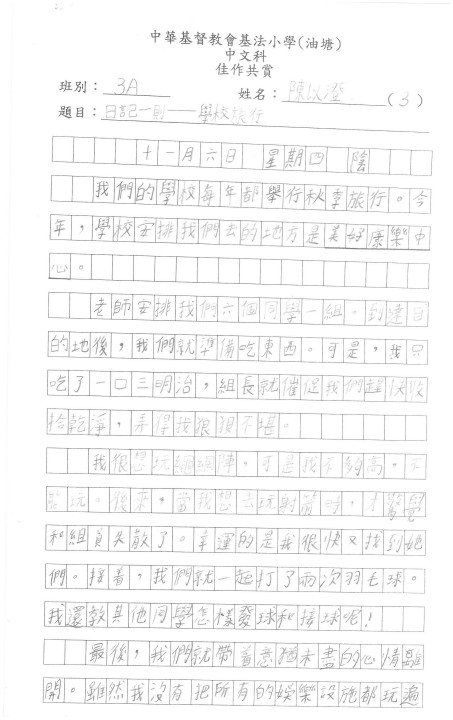 中華基督教會基法小學(油塘)
中文科
佳作共賞
班別：3A 姓名：陳以澄(3)
題目：日記一則——學校旅行
十一月六日 星期四 陰
我們的學校每年都舉行秋季旅行。今
年，學校安排我們去的地方是美好康樂中
心。
老師安排我們六個同學一組。到達目
的地後，我們就準備吃東西。可是，我只
吃了一口三明治，組長就催促我們趕快收
拾乾淨，弄得我狼狽不堪。
我很想玩繩網陣，可是我不夠高，不
能玩。後來，當我想去玩射箭時，才驚覺
和組員失散了。幸運的是我很快又找到她
們。接着，我們就一起打了兩次羽毛球。
我還教其他同學怎樣發球和接球呢！
最後，我們就帶着意猶未盡的心情離
開。雖然我沒有把所有的娛樂設施都玩遍